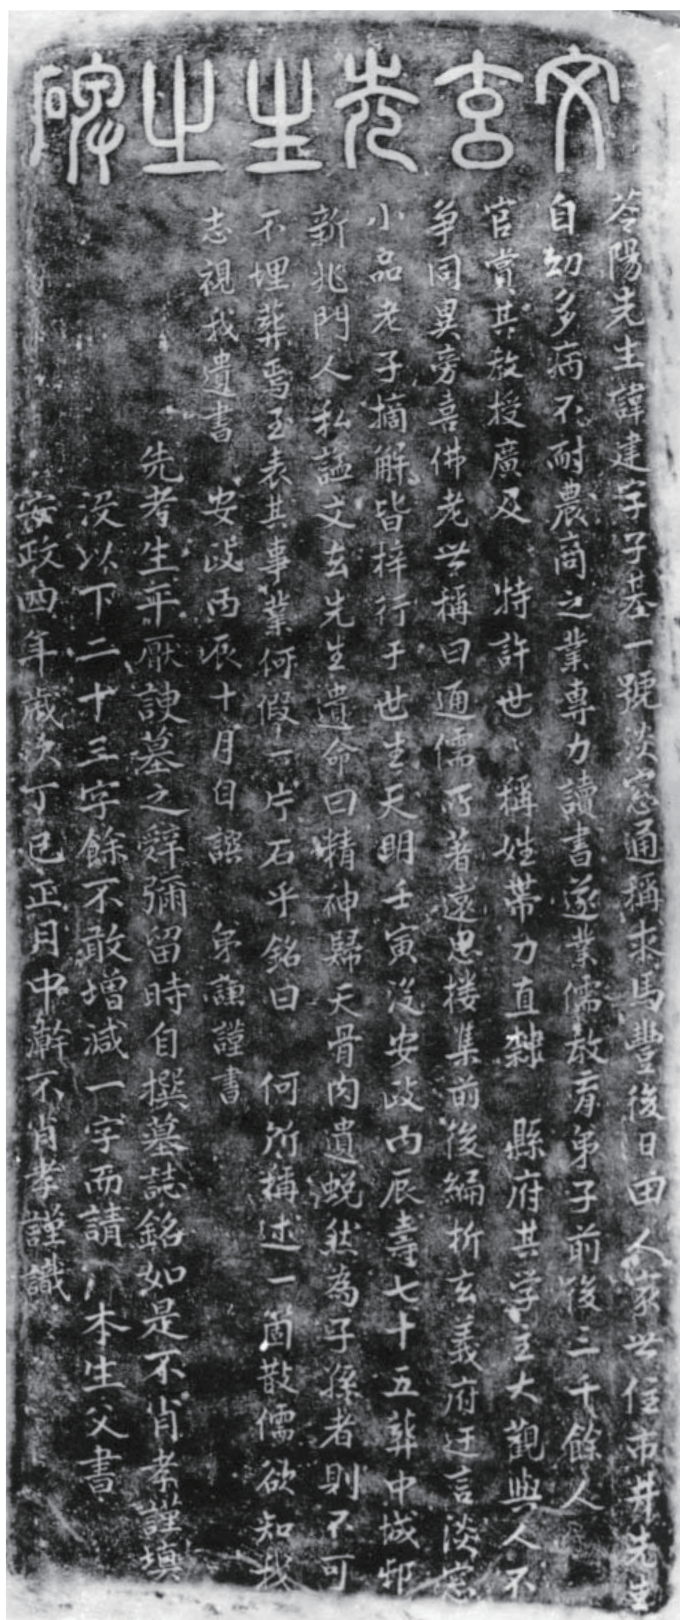 文玄先生之碑
苓陽先生諱建字子基一號淡窓通稱求馬豐後日田人家世住市井先生
自幼多病不耐農商之業專力讀書遂業儒教育弟子前後三千餘人
官賞其教授廣及　特許世〻稱姓帶刀直隸　縣府其学主大觀與人不
争同異旁喜佛老世稱曰通儒所著遠思楼集前後編析玄義府迂言淡窓
小品老子摘解皆梓行于世生天明壬寅没安政丙辰壽七十五葬中城邨
新兆門人私謚文玄先生遺命曰精神歸天骨肉遺蛻然為子孫者則不可
不埋葬焉至表其事業何假一片石乎銘曰　何所稱述一箇散儒欲知我
志視我遺書　安政丙辰十月自譔　弟謙謹書
先考生平厭諛墓之辭彌留時自撰墓誌銘如是不肖孝謹塡
没以下二十三字餘不敢增減一字而請　本生父書
安政四年歳次丁巳正月中澣不肖孝謹識